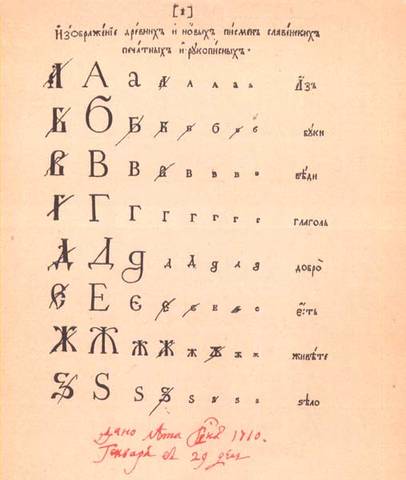 [1]
Изображенїе древнихъ и новыхъ писменъ славенскихъ
печатныхъ и рукописныхъ.
А А а А а а а а А҆́зъ
Б Б Б Б Б б б б бꙋ́ки
В В В В в в в в вѣ́ди
Г Г Г Г г г г г глаголь
Д Д д д д д д д добро̀
Є Е Є є є е е є є҆́сть
Ж Ж Ж Ж ж ж ж ж живѣ́те
Ѕ Ѕ ѕ Ѕ ѕ ѕ ѕ ѕ ѕѣло̀
Дано лѣта 1710.
Генваря в 29 день